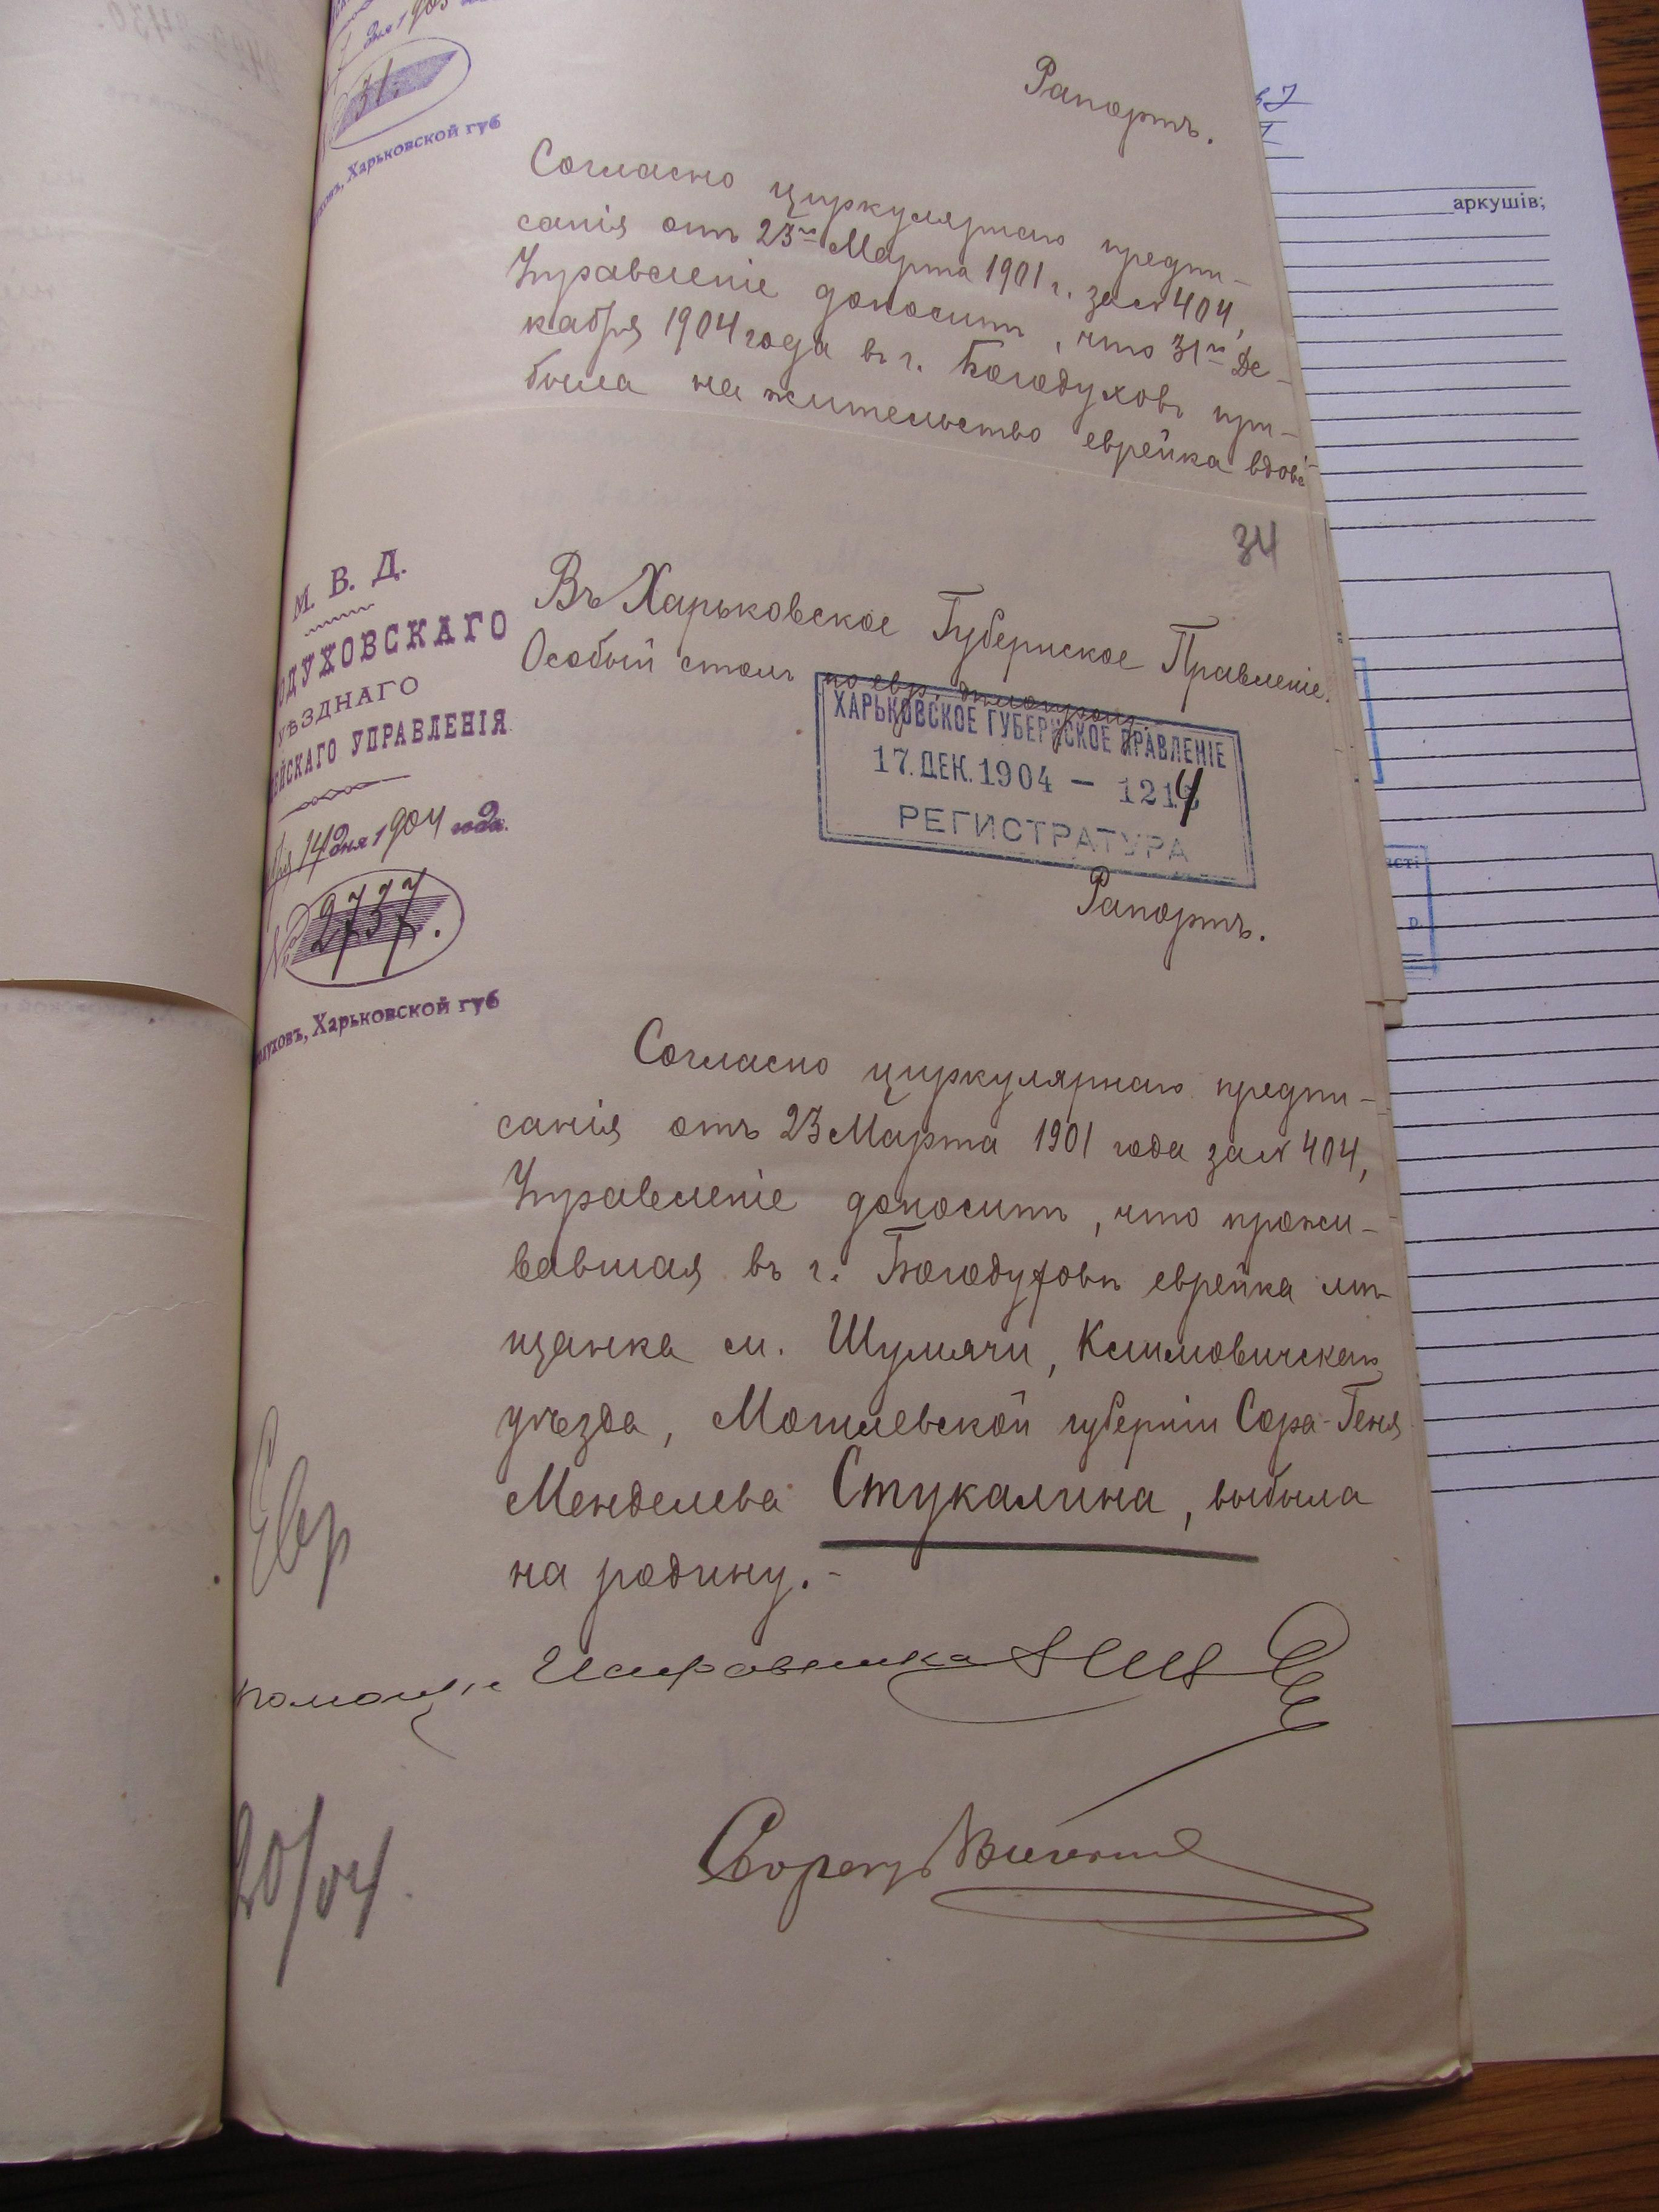 дня 1905
31.
Харьковской губ
Рапортъ.
Согласно циркулярнаго предпи-
санія отъ 23го Марта 1901 г. за № 404,
Управленіе доноситъ, что 31го Де-
кабря 1904 года въ г. Богодуховъ при-
была на жительство еврейка вдова
аркушів;
34
М. В. Д.
ОДУХОВСКАГО
УѢЗДНАГО
ЕЙСКАГО УПРАВЛЕНІЯ
14 дня 1904 года.
№ 2737.
духовъ, Харьковской губ
Въ Харьковское Губернское Правленіе.
Особый столъ по евр. дѣлопроиз.
ХАРЬКОВСКОЕ ГУБЕРНСКОЕ ПРАВЛЕНІЕ
17. ДЕК. 1904 — 1214
РЕГИСТРАТУРА
Рапортъ.
Согласно циркулярнаго предпи-
санія отъ 23 Марта 1901 года за № 404,
Управленіе доноситъ, что прожи-
вавшая въ г. Богодуховѣ еврейка мѣ-
щанка м. Шумячи, Климовичскаго
уѣзда, Могилевской губерніи Сора-Геня
Менделева Стукалина, выбыла
на родину.-
Евр
Помощн. Исправника
20/04
Секретарь